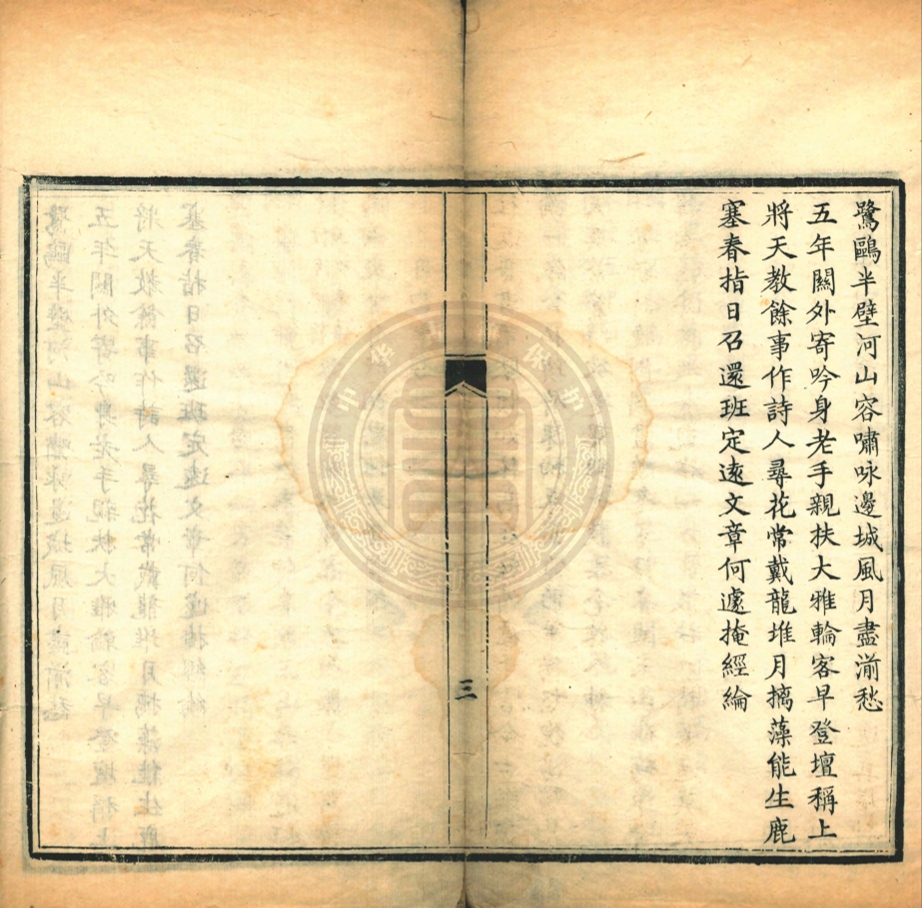 鷺鷗半壁河山容嘯咏邊城風月盡湔愁
五年關外寄吟身老手親扶大雅輪客早登壇稱上
將天教餘事作詩人尋花常戴龍堆月摛藻能生鹿
塞春指日召還班定遠文章何遽掩經綸
三